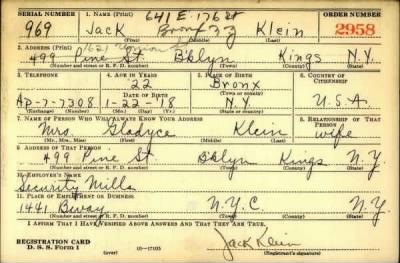 SERIAL NUMBER 1. NAME (Print) 641 E. 176 St ORDER NUMBER
969 Jack Bronx Klein 2958
(First) (Middle) (Last)
2. ADDRESS (Print)
499 Pine St. B'klyn Kings N.Y.
(Number and street or R. F. D. number) (Town) (County) (State)
3. TELEPHONE 4. AGE IN YEARS 5. PLACE OF BIRTH 6. COUNTRY OF CITIZENSHIP
22 Bronx
DATE OF BIRTH (Town or county)
AP-7-7308 1-22-'18 N.Y. U.S.A.
(Exchange) (Number) (Mo.) (Day) (Yr.) (State or country)
7. NAME OF PERSON WHO WILL ALWAYS KNOW YOUR ADDRESS 8. RELATIONSHIP OF THAT PERSON
Mrs. Gladyce Klein wife
(Mr., Mrs., Miss) (First) (Middle) (Last)
9. ADDRESS OF THAT PERSON
499 Pine St. B'klyn Kings N.Y.
(Number and street or R. F. D. number) (Town) (County) (State)
10. EMPLOYER'S NAME
Security Mills
11. PLACE OF EMPLOYMENT OR BUSINESS
1441 Bway N.Y.C. N.Y.
(Number and street or R. F. D. number) (Town) (County) (State)
I AFFIRM THAT I HAVE VERIFIED ABOVE ANSWERS AND THAT THEY ARE TRUE.
REGISTRATION CARD Jack Klein
D. S. S. Form 1 (over) 16-17105 (Registrant's signature)